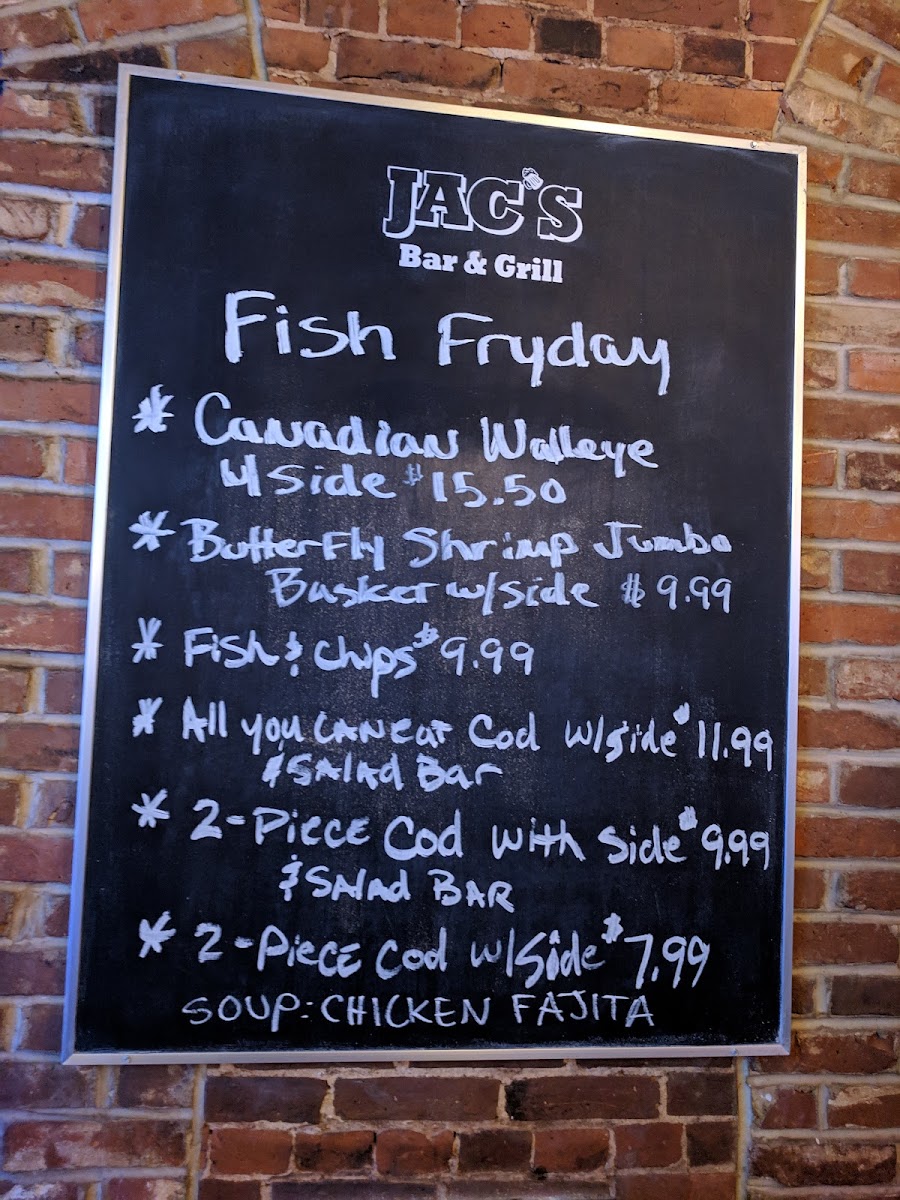 JAC'S
Bar & Grill
Fish Fryday
* Canadian Walleye
w/ side $15.50
* Butterfly Shrimp Jumbo
Basket w/side $9.99
* Fish & Chips $9.99
* All you can eat Cod w/side $11.99
& Salad Bar
* 2-Piece Cod with side $9.99
& Salad Bar
* 2-Piece Cod w/side $7.99
SOUP: CHICKEN FAJITA